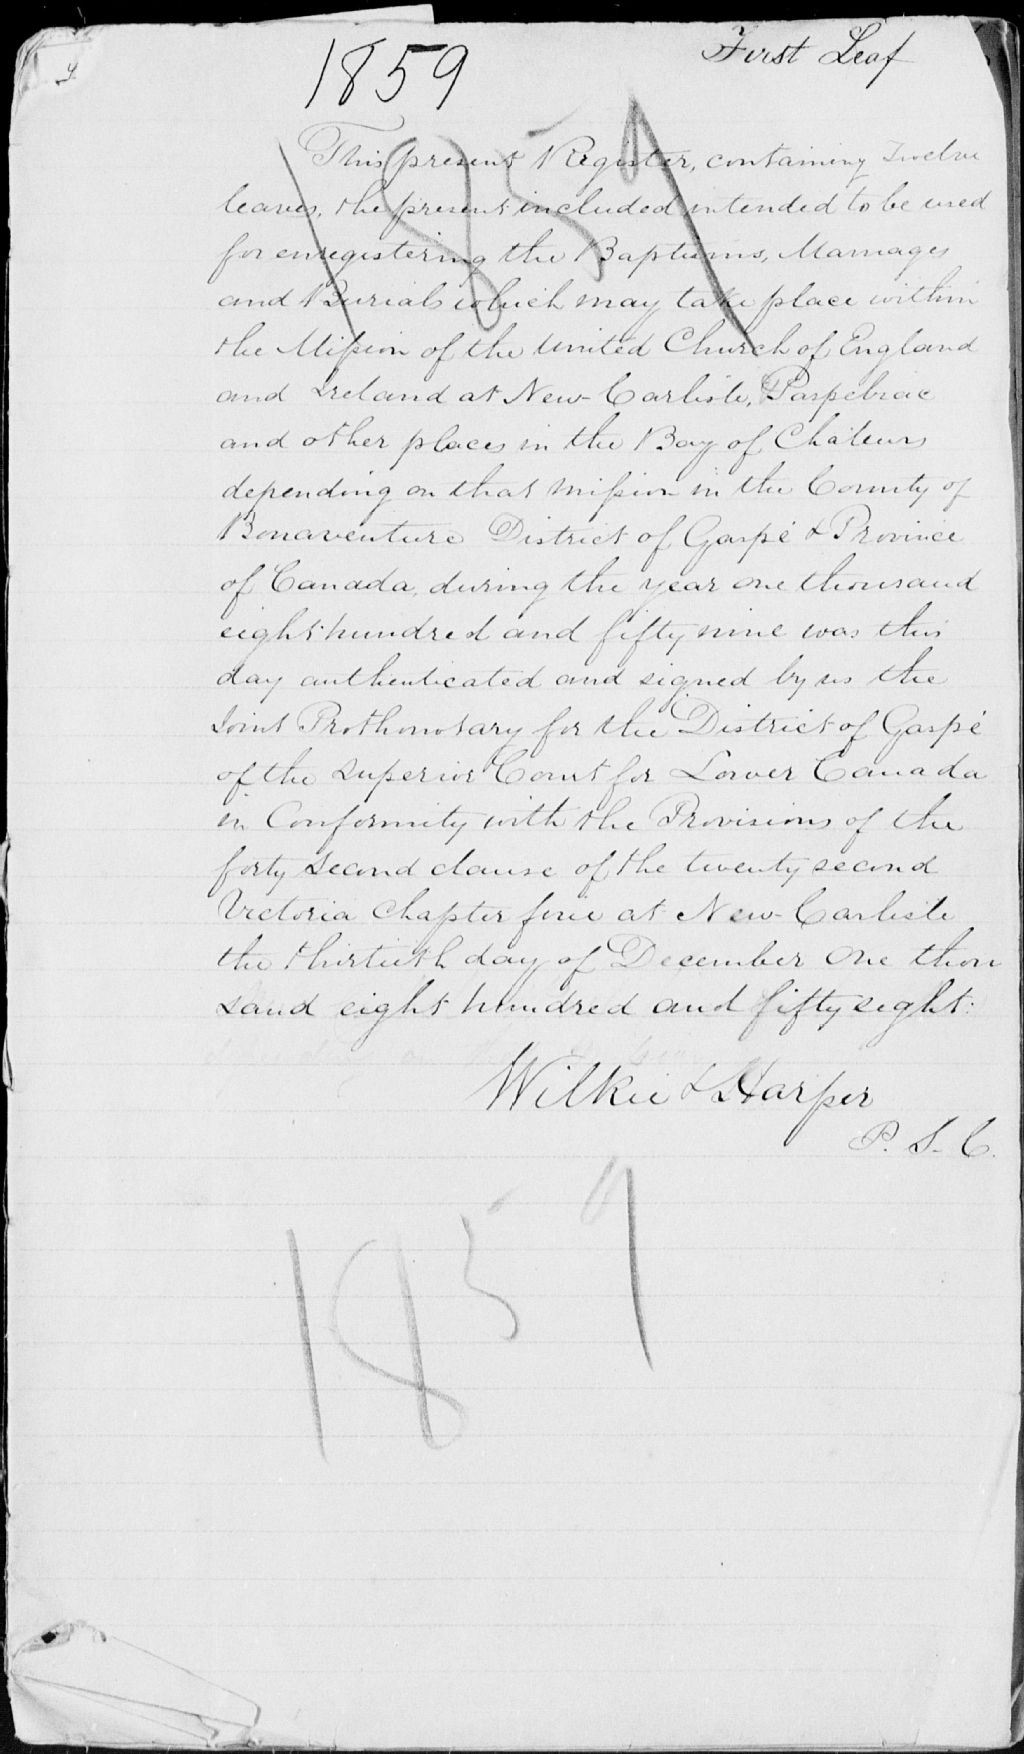 1859
First Leaf
This present Register, containing Twelve
leaves, the present included intended to be used
for enregistering the Baptisms, Marriages
and Burials which may take place within
the Mission of the United Church of England
and Ireland at New-Carlisle, Paspebiac
and other places in the Bay of Chaleurs
depending on that Mission in the County of
Bonaventure District of Gaspé & Province
of Canada, during the year one thousand
eight hundred and fifty nine was this
day authenticated and signed by us the
Joint Prothonotary for the District of Gaspé
of the Superior Court for Lower Canada
in Conformity with the Provisions of the
forty second clause of the twenty second
Victoria Chapter five at New-Carlisle
the thirtieth day of December One thou
sand eight hundred and fifty eight.
Wilkie & Harper
P. S. C.
1859
1859